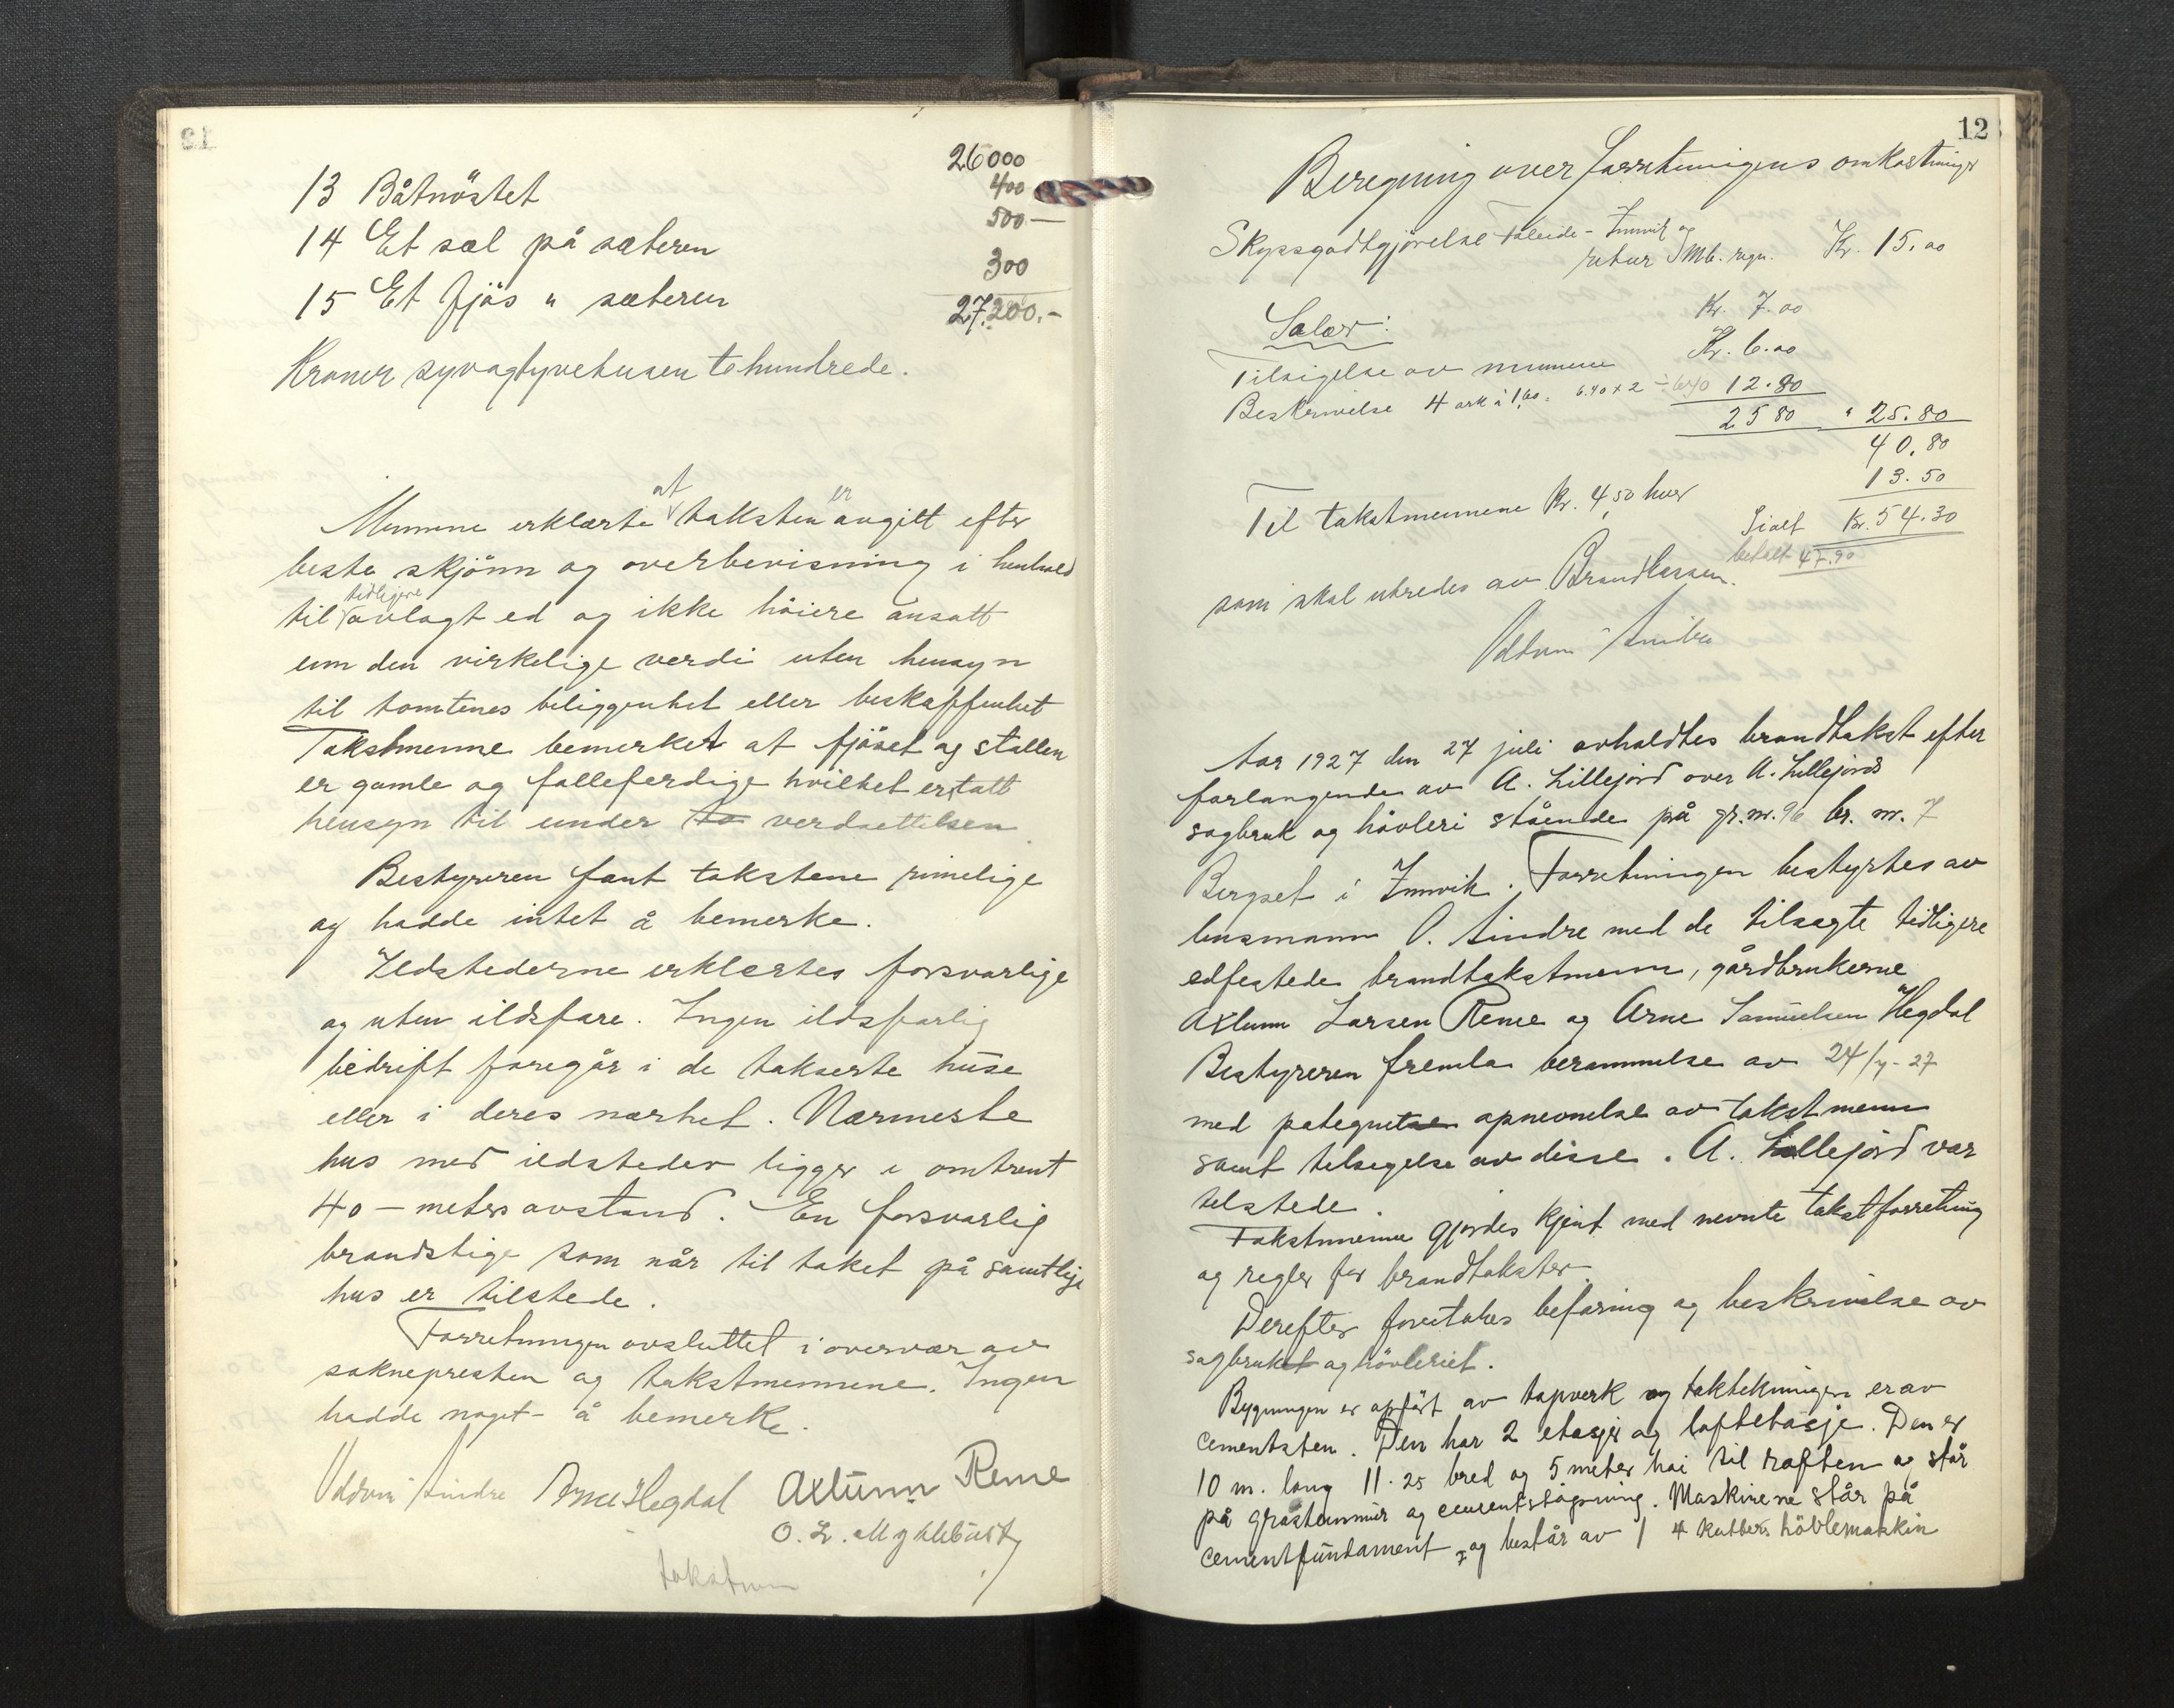 26000
13 Båtnöstet 400
500.—
14 Et sæl på sæteren
300
15 Et fjös " sæteren
27.200.-
Kroner syvogtyvetusen tohundrede.
Mennene erklærte at taksten er avgitt efter
beste skjönn og overbevisning i henhold
til tidligere avlagt ed og ikke höiere ansatt
enn den virkelige verdi uten hensyn
til tomtenes beliggenhet eller beskaffenhet
Takstmenne bemerket at fjöset og stallen
er gamle og falleferdige hvilket er tatt
hensyn til under ta verdsettelsen.
Bestyreren fant takstene rimelige
og hadde intet å bemerke.
Ildstederne erklærtes forsvarlige
og uten ildsfare. Ingen ildsfarlig
bedrift foregår i de takserte huse
eller i deres nærhet. Nærmeste
hus med ildsteder ligger i omtrent
40 — meters avstand. En forsvarlig
brandstige som når til taket på samtlige
hus er tilstede.
Forretningen avsluttet i overvær av
soknepresten og takstmennene. Ingen
hadde noget å bemerke.
Oddvin Aindre Arne Hegdal Axlunn Reme
O. L. Myklebust
takstmenn
12
Beregning over forretningens omkostninger
Skyssgodtgjörelse Faleide - Innvik og
retur Mb. regn. Kr. 15.00
Salær: Kr. 7.00
Tilsigelse av mennene Kr. 6.00
Beskrivelse 4 ark à 1.60 = 6.40 x 2 ÷ 640 12.80
25 80 " 25.80
40.80
Til takstmennene Kr. 4,50 hver 13.50
Ialt Kr. 54.30
betalt 47.90
som skal utredes av Brandkassen.
Oddvin Aindre
Aar 1927 den 27 juli avholdtes brandtakst efter
forlangende av A. Lillejord over A. Lillejords
sagbruk og hövleri stående på gr.nr. 96 br. nr. 7
Bergset i Innvik. Forretningen bestyrtes av
lensmann O. Aindre med de tilsagte tidligere
edfestede brandtakstmenn, gårdbrukerne
Axlunn Larsen Reme og Arne Samuelsen Hegdal
Bestyreren fremla berammelse av 24/7-27
med påtegnet opnevnelse av takstmenn
samt tilsigelse av disse. A. Lillejord var
tilstede.
Takstmennene gjordes kjent med nevnte takstforretning
og regler for brandtakster.
Derefter foretokes befaring og beskrivelse av
sagbruket og hövleriet.
Bygningen er opfört av tapverk og taktekningen er av
cementsten. Den har 2 etasjer og loftetasje. Den er
10 m. lang 11.25 bred og 5 meter höi til raften og står
på gråstenmur og cementstöpning. Maskinene står på
cementfundament, og består av 1 4 kutters hövlemaskin